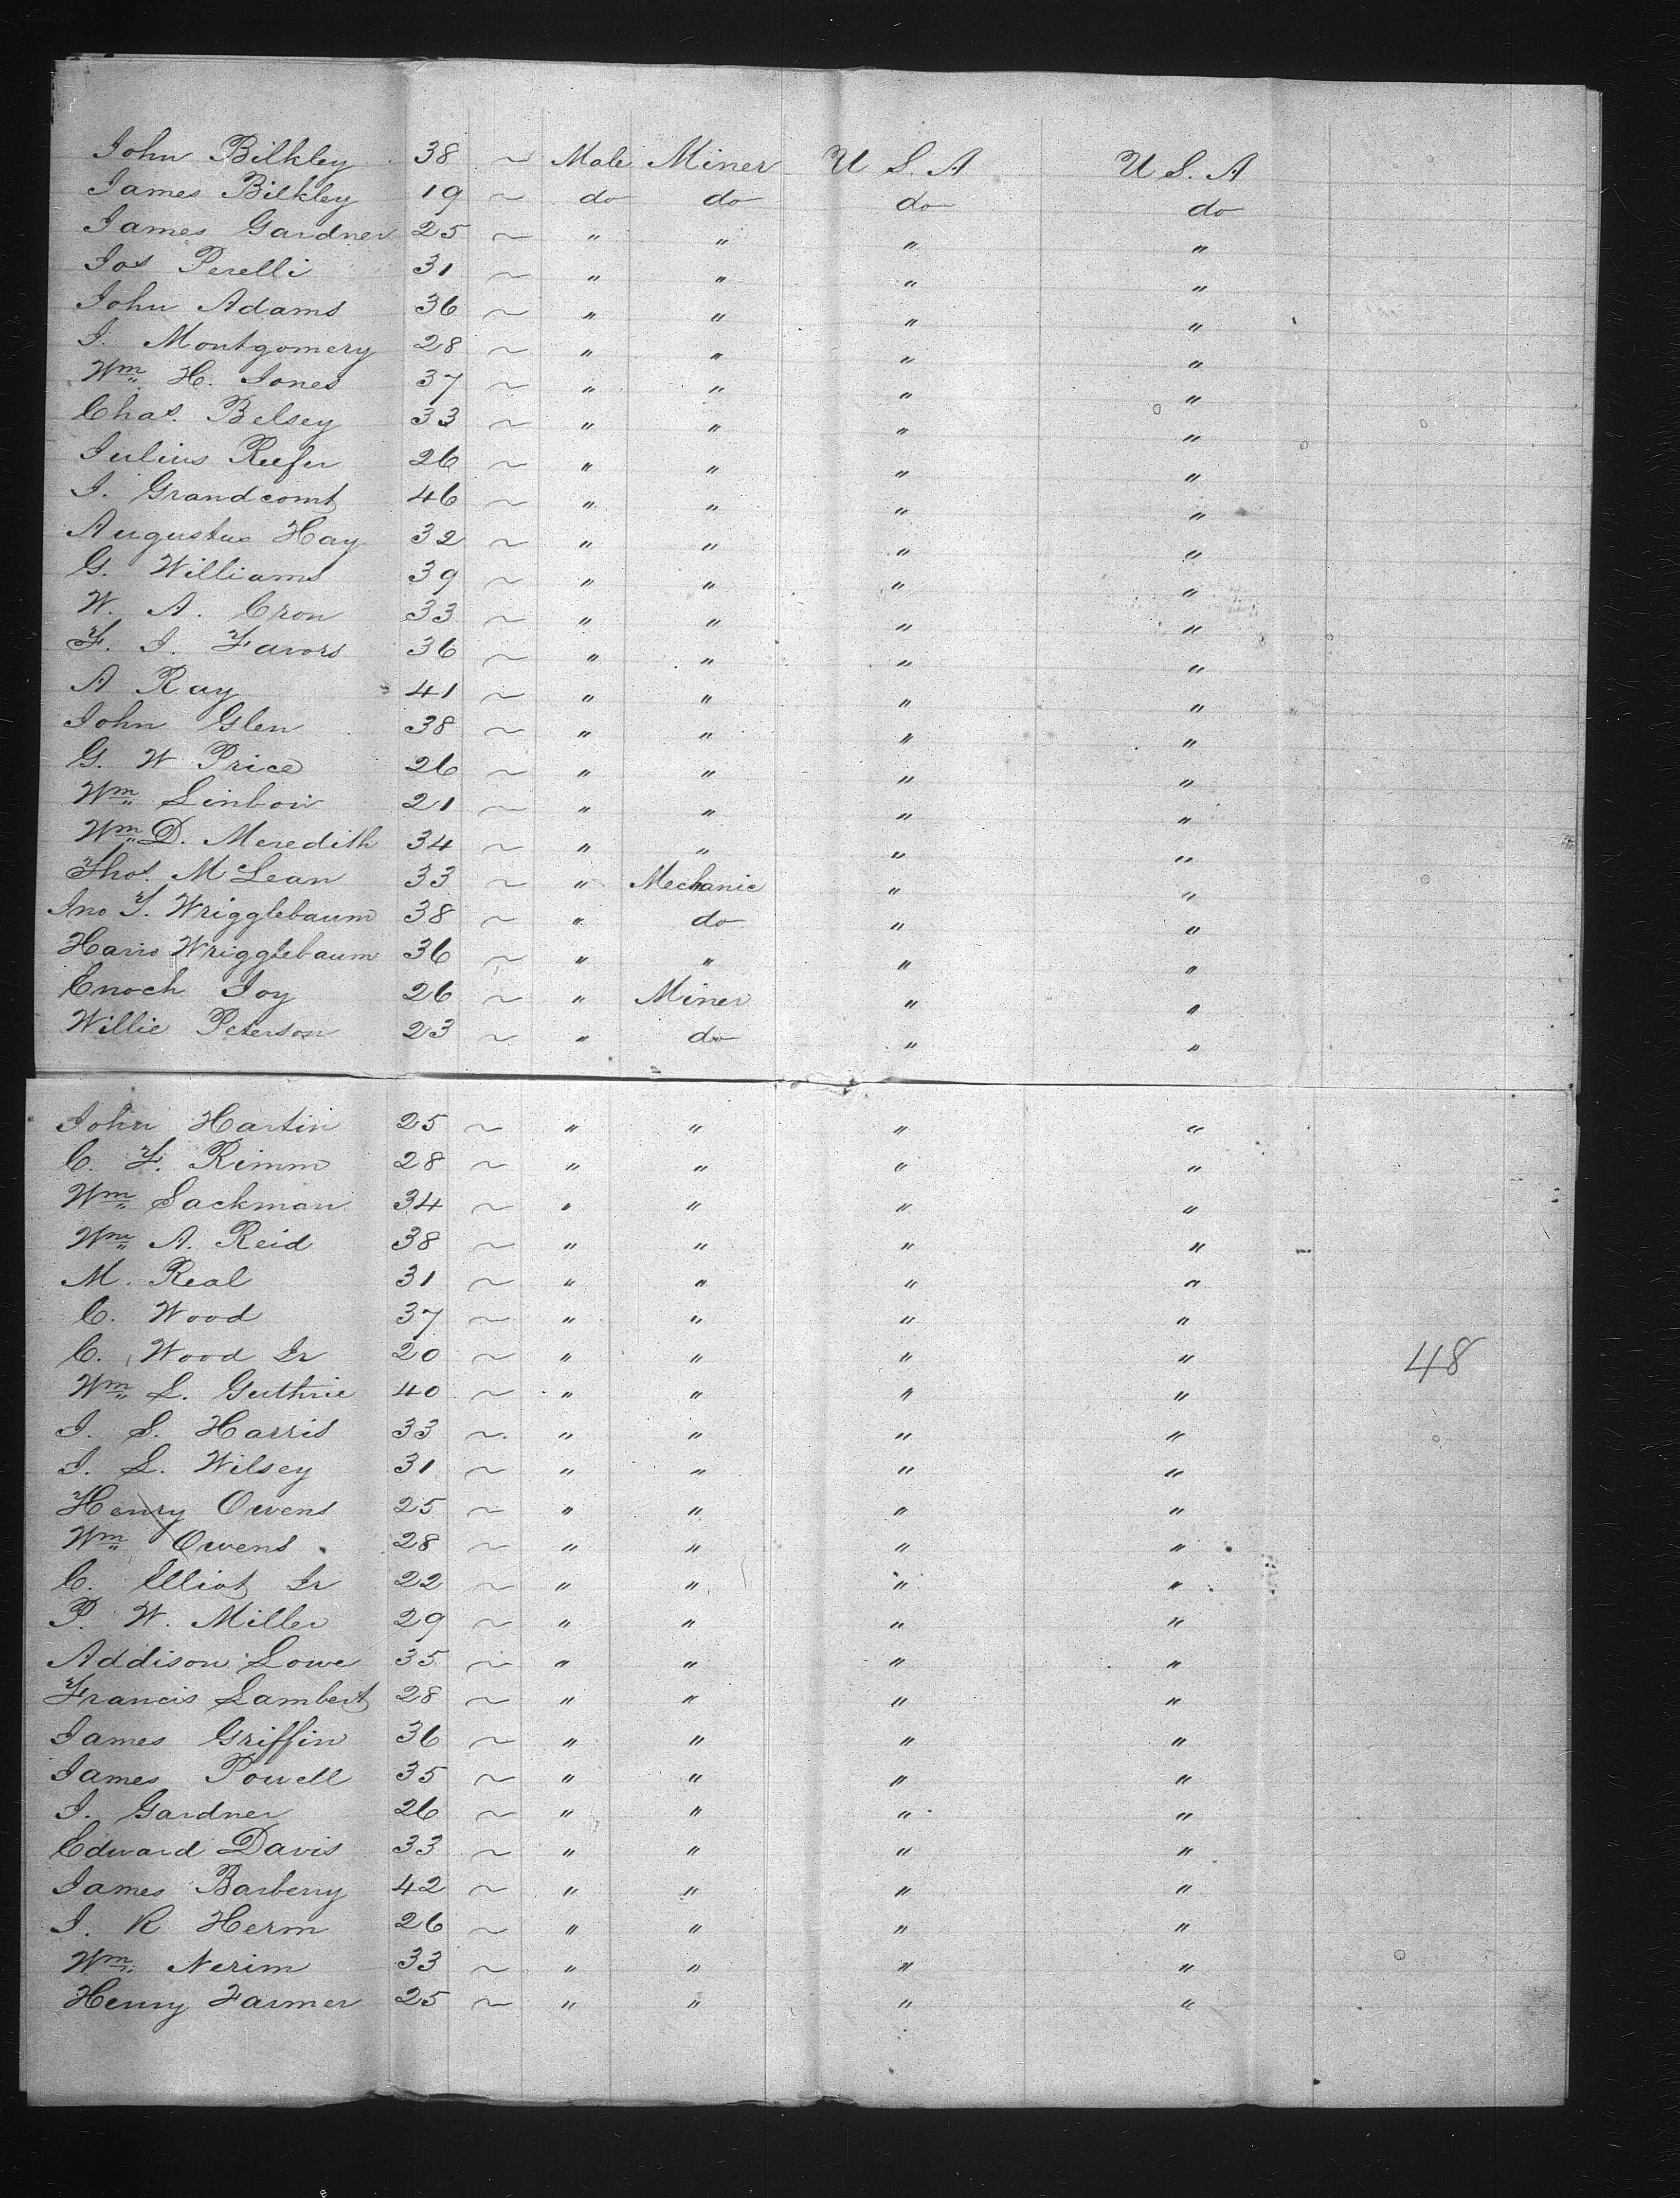 John Bilkley 38 ~ Male Miner U S. A U S. A
James Bilkley 19 ~ do do do do
James Gardner 25 ~ " " " "
Jos Perelli 31 ~ " " " "
John Adams 36 ~ " " " "
J. Montgomery 28 ~ " " " "
Wm H. Jones 37 ~ " " " "
Chas. Belsey 33 ~ " " " "
Julius Reefer 26 ~ " " " "
J. Grandcomt 46 ~ " " " "
Augustus Hay 32 ~ " " " "
G. Williams 39 ~ " " " "
W. A. Cron 33 ~ " " " "
F. J. Favors 36 ~ " " " "
A Ray 41 ~ " " " "
John Glen 38 ~ " " " "
G. W Price 26 ~ " " " "
Wm 21 ~ " " " "
Wm D. Meredith 34 ~ " " " "
Thos. McLean 33 ~ " Mechanic " "
Jno T. Wrigglebaum 38 ~ " do " "
Harris Wrigglebaum 36 ~ " " " "
Enoch Joy 26 ~ " Miner " "
Willie Peterson 23 ~ " do " "
John Hartin 25 ~ " " " "
C. F. Rimm 28 ~ " " " "
Wm Sackman 34 ~ " " " "
Wm A. Reid 38 ~ " " " "
M. Real 31 ~ " " " "
C. Wood 37 ~ " " " "
C. Wood Jr 20 ~ " " " " 48
Wm L. Guthrie 40 ~ " " " "
J. S. Harris 33 ~ " " " "
J. L. Wilsey 31 ~ " " " "
Henry Owens 25 ~ " " " "
Wm Owens 28 ~ " " " "
C. Elliot Jr 22 ~ " " " "
P. W. Miller 29 ~ " " " "
Addison Lowe 35 ~ " " " "
Francis Lambert 28 ~ " " " "
James Griffin 36 ~ " " " "
James Powell 35 ~ " " " "
J. Gardner 26 ~ " " " "
Edward Davis 33 ~ " " " "
James Barberry 42 ~ " " " "
J. R Herm 26 ~ " " " "
Wm Nerim 33 ~ " " " "
Henry Farmer 25 ~ " " " "